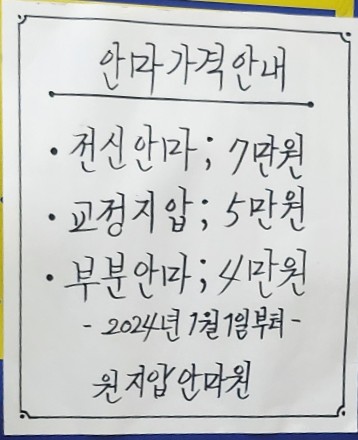 안마가격안내
• 전신안마; 7만원
• 교정지압; 5만원
• 부분안마; 4만원
- 2024년 1월 1일부터 -
원지압안마원